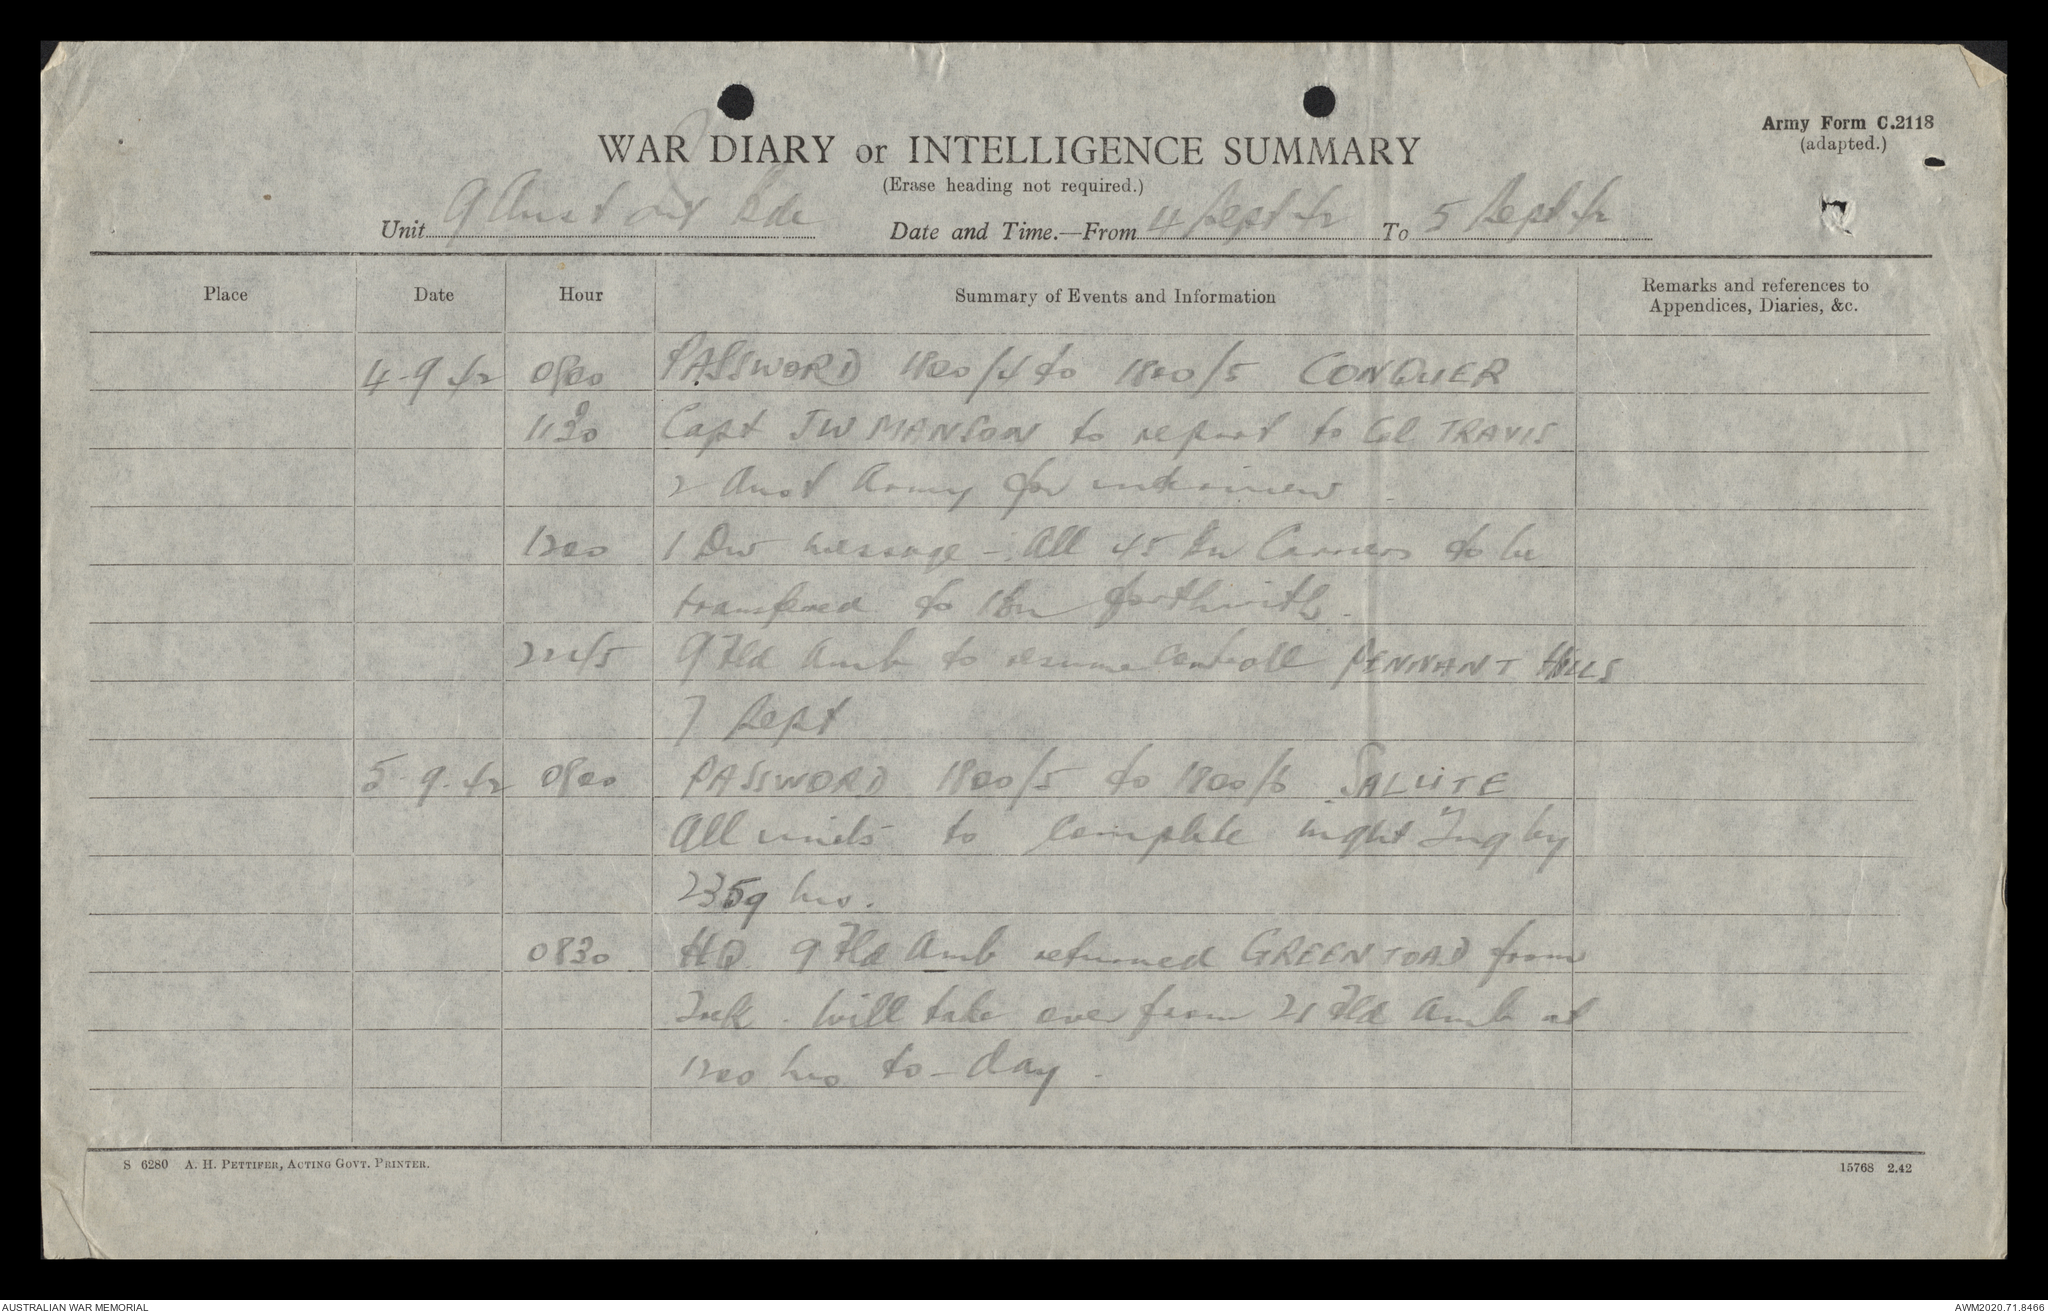 WAR DIARY or INTELLIGENCE SUMMARY
Army Form C.2118
(adapted.)
(Erase heading not required.)
Unit 9 Aust Inf Bde Date and Time.—From 4 Sept 42 To 5 Sept 42
Place Date Hour Summary of Events and Information Remarks and references to
Appendices, Diaries, &c.
4-9-42 0800 PASSWORD 1800/4 to 1800/5 CONQUER
1130 Capt JW MANSON to report to Col TRAVIS
2 Aust Army for interview.
1200 1 Div message - All 45 Bn Carriers to be
transfered to 1 Bn forthwith.
2215 9 Fld Amb to resume Controll PENNANT HILLS
7 Sept
5-9-42 0800 PASSWORD 1800/5 to 1800/6 SALUTE
All units to complete night Tng by
2359 hrs.
0830 HQ 9 Fld Amb returned GREEN ROAD from
Trek. Will take over from 21 Fld Amb at
1200 hrs to-day.
S 6280 A. H. PETTIFER, ACTING GOVT. PRINTER.
15768 2.42
AUSTRALIAN WAR MEMORIAL
AWM2020.71.8466